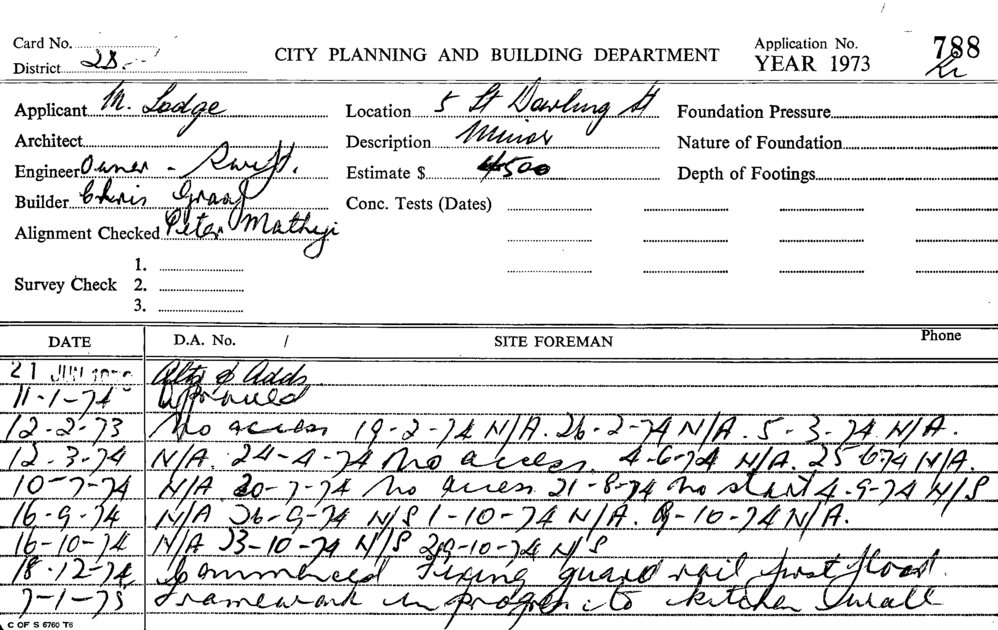 Card No.
District 28
CITY PLANNING AND BUILDING DEPARTMENT
Application No. 788
YEAR 1973
Applicant M. Lodge
Location 5 St Darling St
Foundation Pressure
Architect
Description Minor
Nature of Foundation
Engineer Owner -
Estimate $ 4500
Depth of Footings
Builder Chris Graaf
Conc. Tests (Dates)
Alignment Checked Peter
Survey Check 1.
2.
3.
DATE D.A. No. / SITE FOREMAN Phone
21 JUN Alts & Adds
11-1-74 Approved
12-2-73 No access 19-2-74 N/A. 26-2-74 N/A. 5-3-74 N/A.
12-3-74 N/A. 24-4-74 No access. 4-6-74 N/A. 25-6-74 N/A.
10-7-74 N/A 30-7-74 No access 21-8-74 No start 4-9-74 N/S
16-9-74 N/A 26-9-74 N/S 1-10-74 N/A. 9-10-74 N/A.
16-10-74 N/A 23-10-74 N/S 29-10-74 N/S
18-12-74 Commenced Fixing guard rail first floor.
7-1-75 Framework in progress to kitchen wall
C OF S 6760 T6